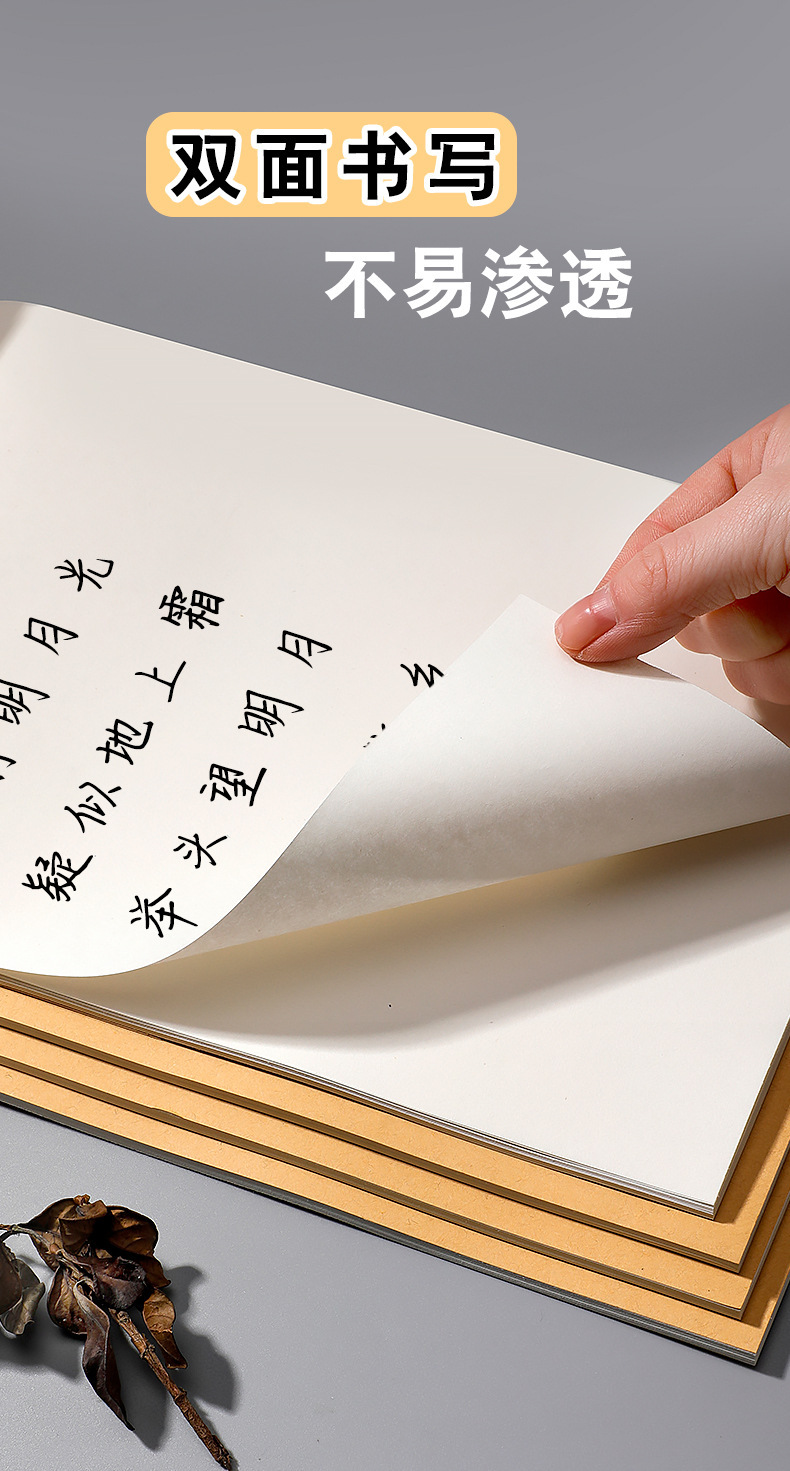 双面书写
不易渗透
明月光
疑似地上霜
举头望明月
乡